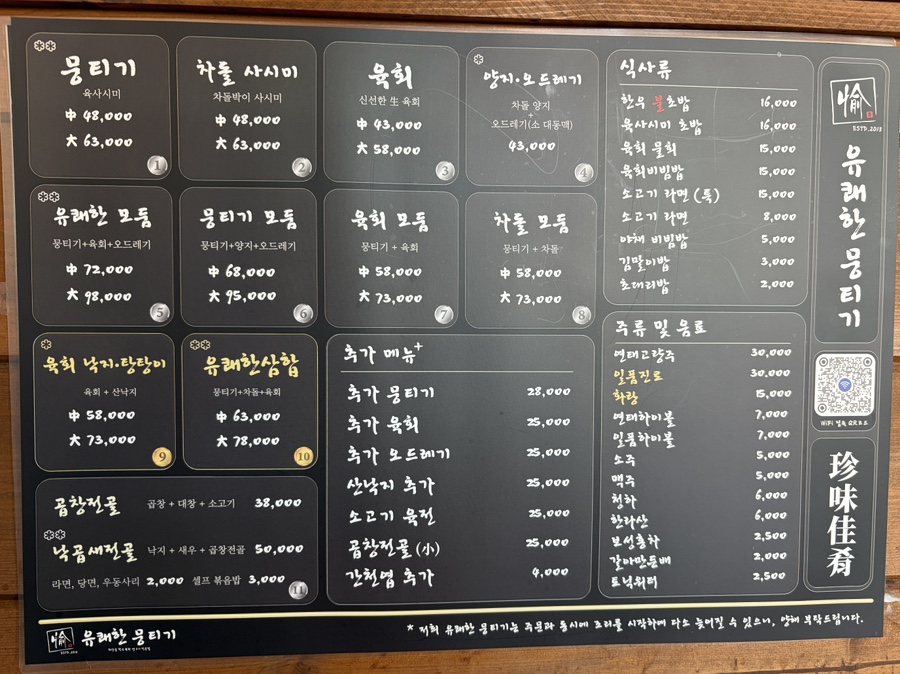 뭉티기
육사시미
中 48,000
大 63,000
1
차돌 사시미
차돌박이 사시미
中 48,000
大 63,000
2
육회
신선한 生 육회
中 43,000
大 58,000
3
양지·오드레기
차돌 양지
+
오드레기(소 대동맥)
43,000
4
유쾌한 모둠
뭉티기+육회+오드레기
中 72,000
大 98,000
5
뭉티기 모둠
뭉티기+양지+오드레기
中 68,000
大 95,000
6
육회 모둠
뭉티기 + 육회
中 58,000
大 73,000
7
차돌 모둠
뭉티기 + 차돌
中 58,000
大 73,000
8
육회 낙지·탕탕이
육회 + 산낙지
中 58,000
大 73,000
9
유쾌한삼합
뭉티기+차돌+육회
中 63,000
大 78,000
10
곱창전골 곱창 + 대창 + 소고기 38,000
낙곱새전골 낙지 + 새우 + 곱창전골 50,000
라면, 당면, 우동사리 2,000 셀프 볶음밥 3,000
11
추가 메뉴+
추가 뭉티기 28,000
추가 육회 25,000
추가 오드레기 25,000
산낙지 추가 25,000
소고기 육전 25,000
곱창전골 (小) 25,000
간천엽 추가 4,000
식사류
한우 불초밥 16,000
육사시미 초밥 16,000
육회 물회 15,000
육회비빔밥 15,000
소고기 라면 (특) 15,000
소고기 라면 8,000
야채 비빔밥 5,000
김말이밥 3,000
초대리밥 2,000
주류 및 음료
연태고량주 30,000
일품진로 30,000
화랑 15,000
연태하이볼 7,000
일품하이볼 7,000
소주 5,000
맥주 5,000
청하 6,000
한라산 6,000
보성홍차 2,500
갈아만든배 2,000
토닉워터 2,500
愉
ESTD.2018
유쾌한뭉티기
WiFi 접속 QR코드
珍味佳肴
愉
ESTD.2018
유쾌한 뭉티기
* 저희 유쾌한 뭉티기는 주문과 동시에 조리를 시작하여 다소 늦어질 수 있으니, 양해 부탁드립니다.